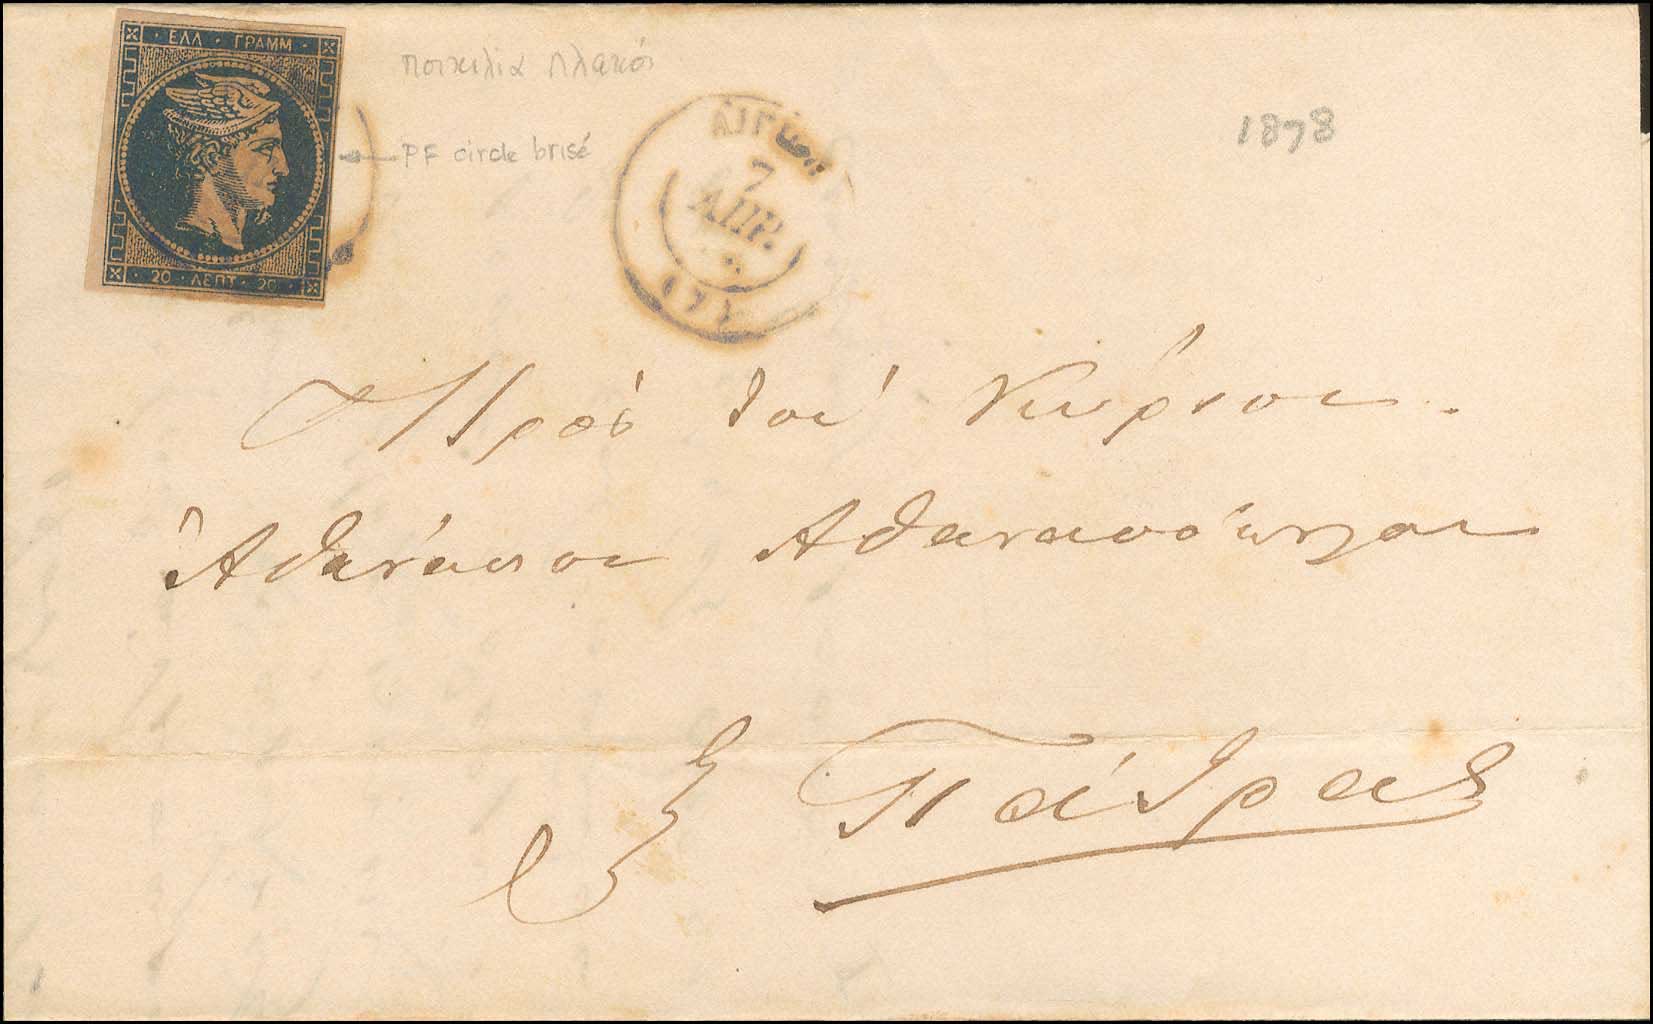 ΕΛΛ · ΓΡΑΜΜ
20 · ΛΕΠΤ · 20
ποικιλία πλακός
PF circle brisé
1878
7
ΑΠΡ.
Πρὸς τον Κύριον.
Ἀθανάσιον Αθανασόπουλον
Πάτρας